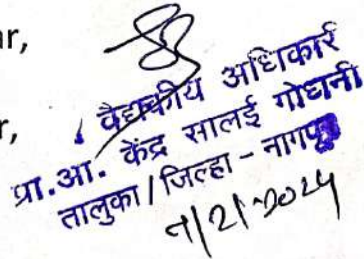 ar,
r,
वैद्यकीय अधिकारी
प्रा.आ. केंद्र सालई गोधनी
तालुका / जिल्हा - नागपूर